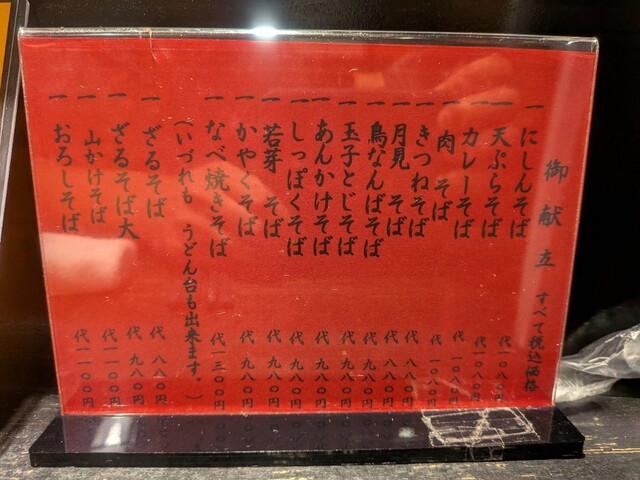 御献立 すべて税込価格
一 にしんそば
一 天ぷらそば
一 カレーそば
一 肉そば
一 きつねそば 代 八八〇円
一 月見そば 代 八八〇円
一 鳥なんばそば 代 九八〇円
一 玉子とじそば 代 八八〇円
一 あんかけそば 代 八八〇円
一 しっぽくそば 代 九八〇円
一 若芽そば 代 九八〇円
一 かやくそば 代 九八〇円
一 なべ焼きそば 代一三〇〇円
（いづれも うどん台も出来ます。）
一 ざるそば 代 八八〇円
一 ざるそば大 代 九八〇円
一 山かけそば 代一一〇〇円
一 おろしそば 代一一〇〇円